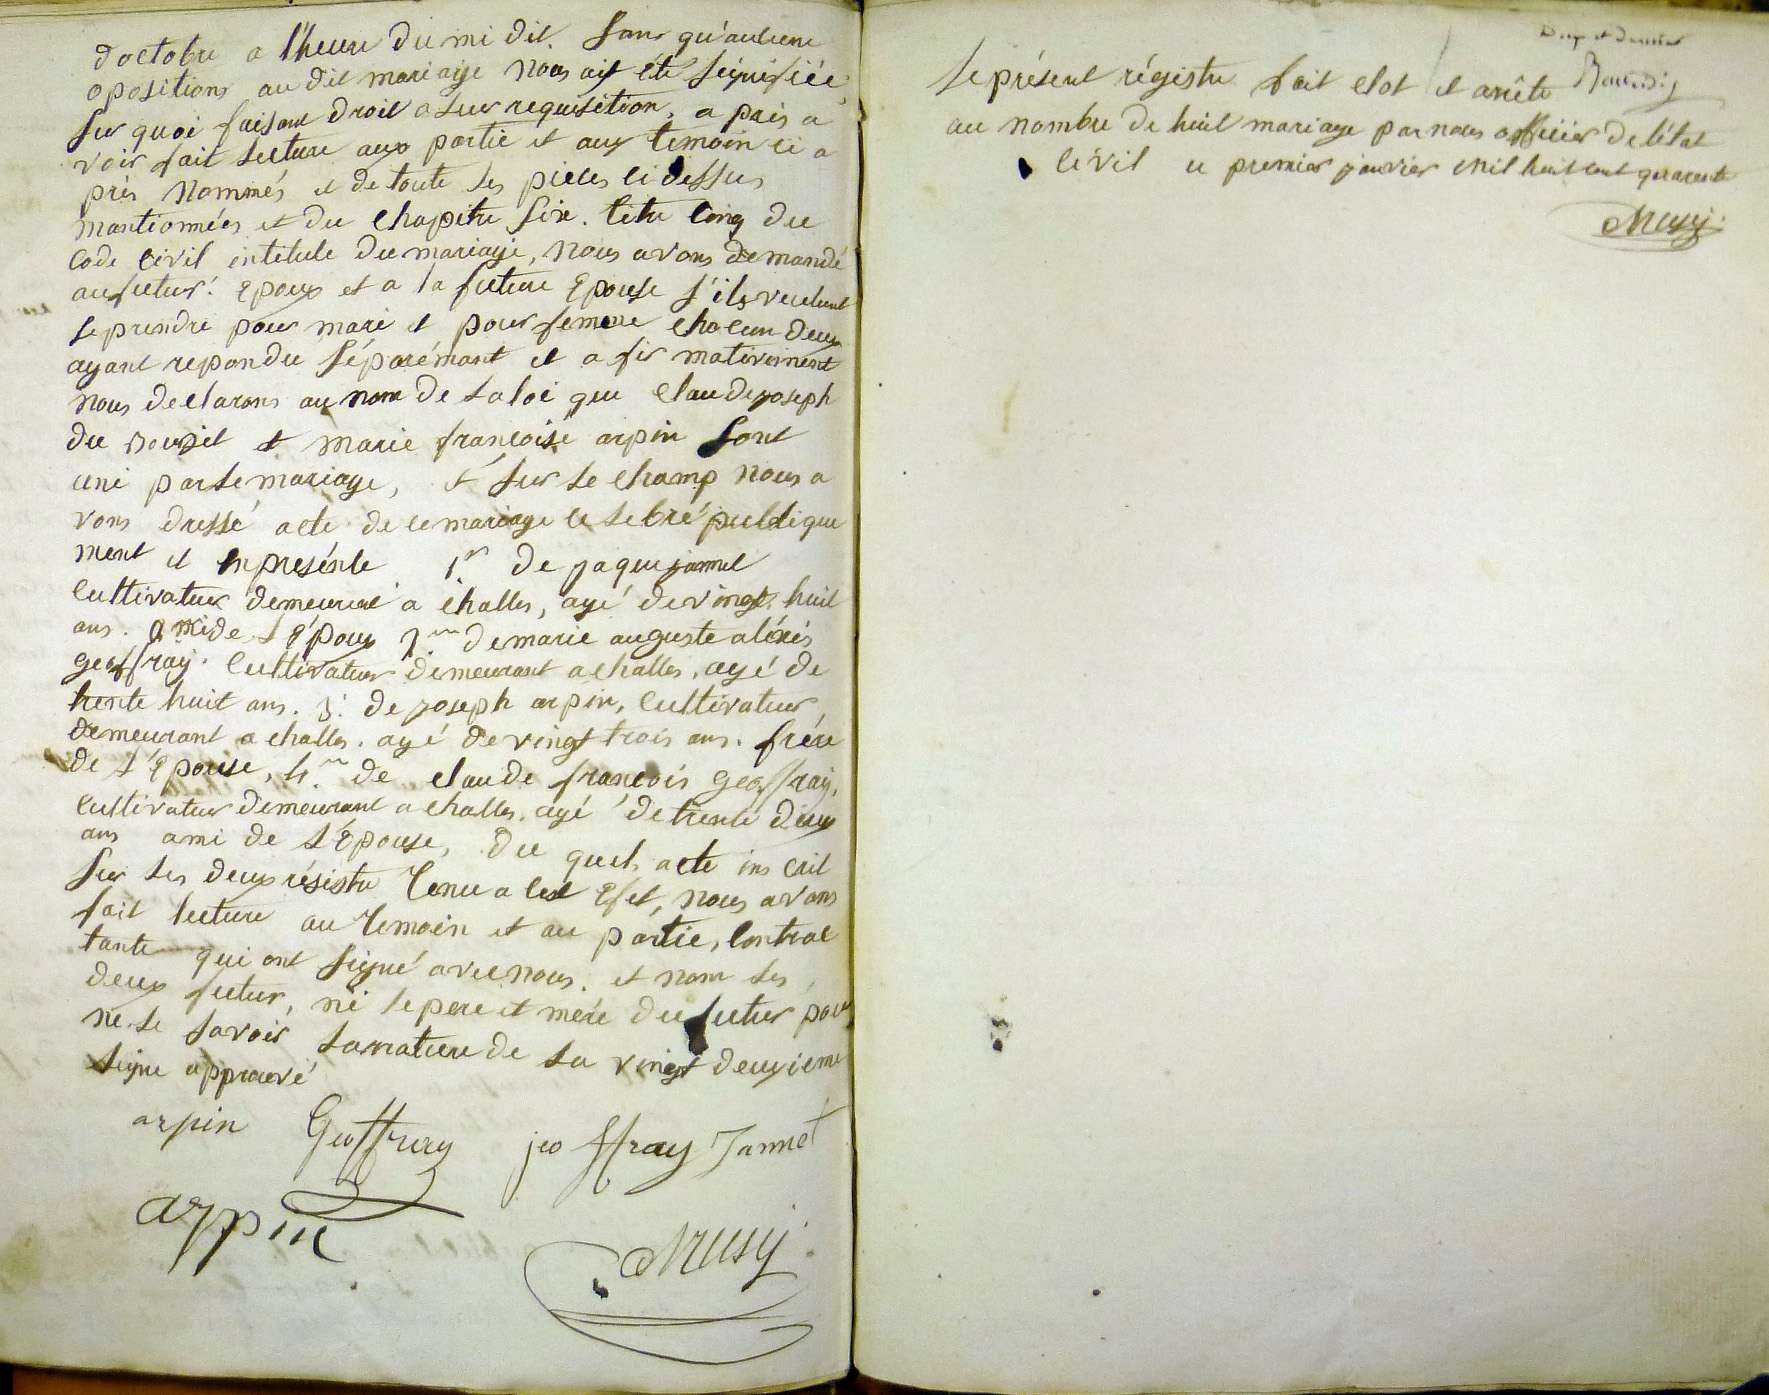 d'octobre a l'heure du mi dit. sans qu'aucune
opositions au dit mariage nous ait été signifiée,
sur quoi faisant droit a leur requisition, a pres a
voir fait lecture aux partie et aux temoin ci a
près nommés et de toute les pieces ci dessus
mantionnées et du chapitre six. titre cinq du
code civil intitule du mariage, nous avons demandé
au futur epoux et a la future Epouse s'ils veulent
se prendre pour mari et pour femme chacun deux
ayant repondu séparémant et a fir mativement
nous declarons au nom de la loi que claude joseph
du et marie françoise arpin sont
uni par le mariage, et sur le champ nous a
vons dressé acte de ce mariage celebré publique
ment et en presénte 1er de jaque jannet
cultivateur demeurant a challes, agé de vingt huit
ans. ami de l'époux 2me de marie auguste aléxis
geoffray. cultivateur demeurant a challes, agé de
trente huit ans. 3. de joseph arpin, cultivateur,
demeurant a challes. agé de vingt trois ans. frére
de l'Epouse, 4me de claude françois geoffray,
cultivateur demeurant a challes. agé de trente deux
ans ami de l'Epouse, du quel acte ins crit
sur les deux résistre tenu a cet efet, nous avons
fait lecture au temoin et au partie, contrac
tante qui ont signé avec nous. et nom les
deux futur, ni le pere et mére du futur pour
ne le savoir la rature de la vingt deuxieme
ligne approuvé
arpin Geoffray jeoffray Jannet
arpin
Musy
Dix et dernier
le présent régistre soit clot et arrête
au nombre de huit mariage par nous officier de l'état
civil ce premier janvier mil huit cent quarante
Musy